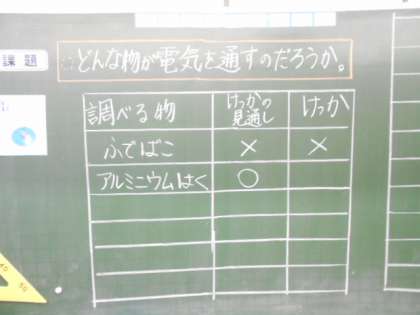 課題
どんな物が電気を通すのだろうか。
調べる物 けっかの見通し けっか
ふでばこ × ×
アルミニウムはく ○
40
50